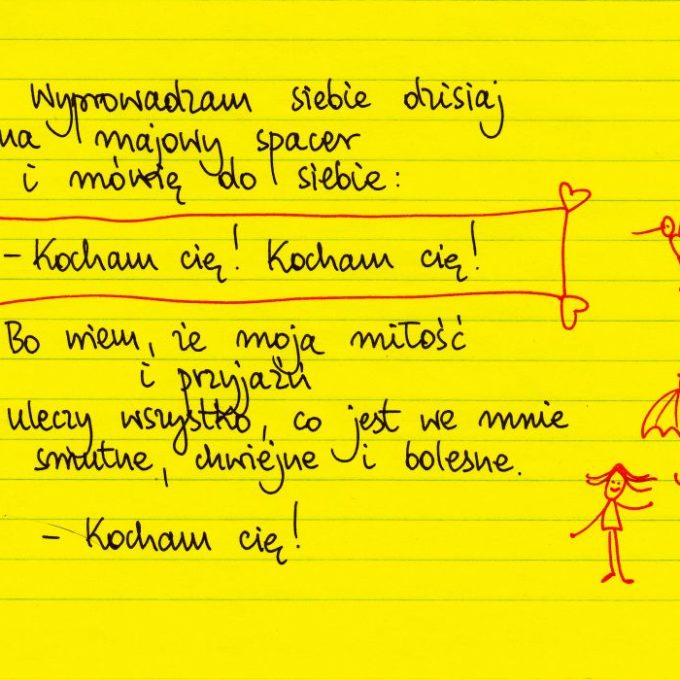 Wyprowadzam siebie dzisiaj
na majowy spacer
i mówię do siebie:
- Kocham cię! Kocham cię!
Bo wiem, że moja miłość
i przyjaźń
uleczy wszystko, co jest we mnie
smutne, chwiejne i bolesne.
- Kocham cię!